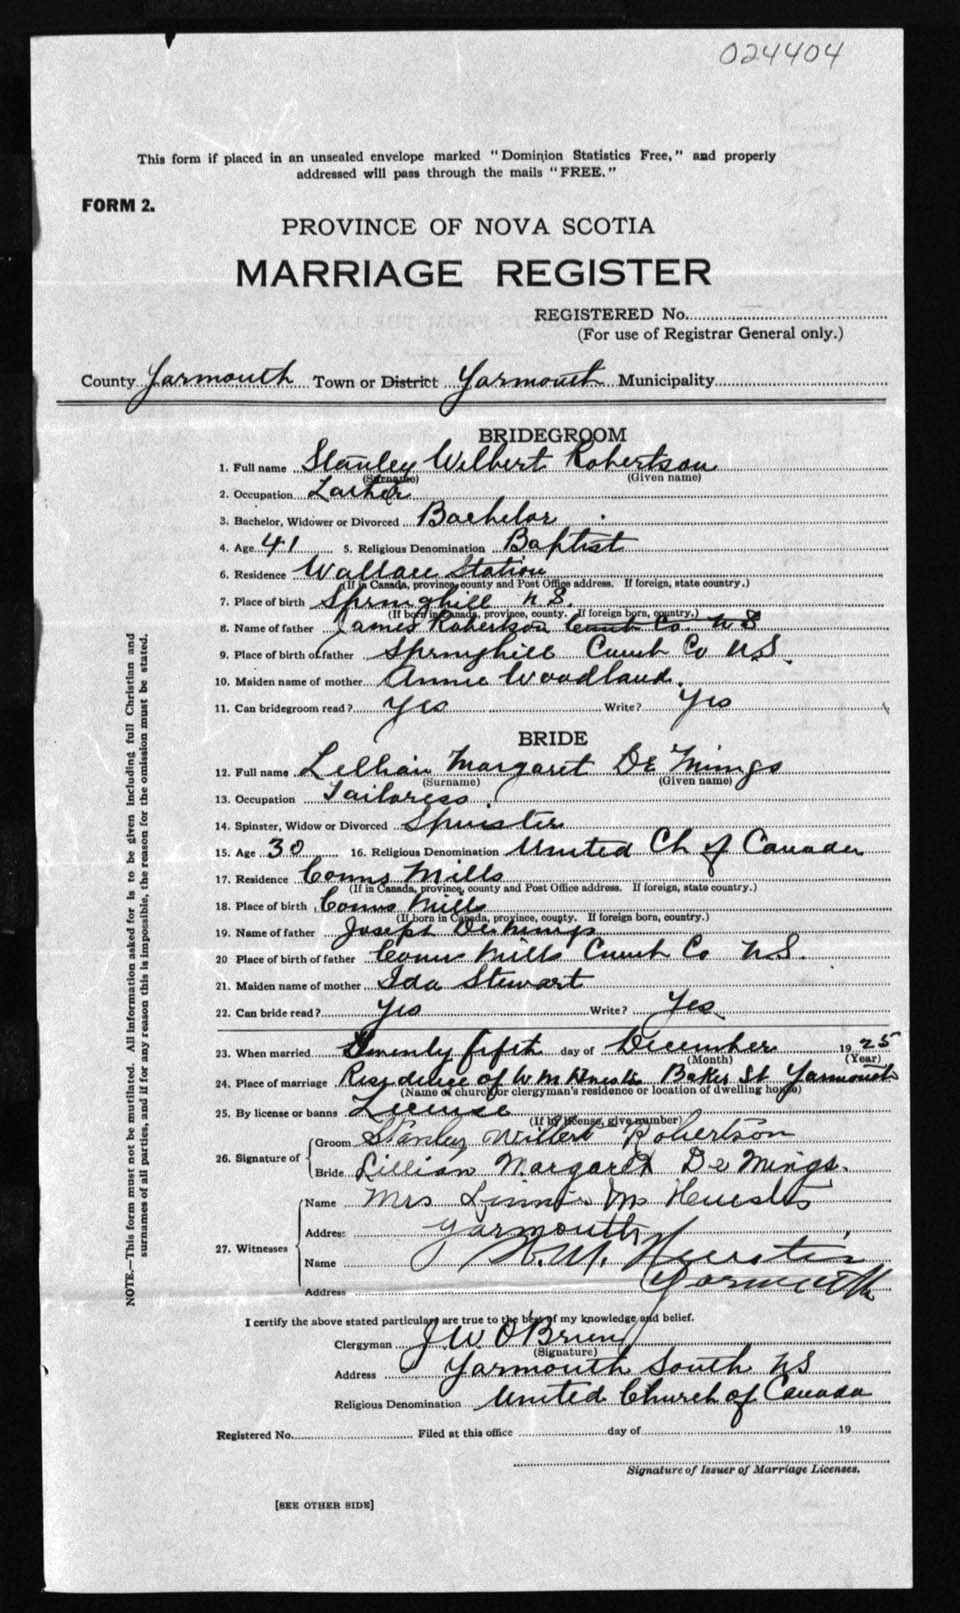 024404
This form if placed in an unsealed envelope marked "Dominion Statistics Free," and properly
addressed will pass through the mails "FREE."
FORM 2.
PROVINCE OF NOVA SCOTIA
MARRIAGE REGISTER
REGISTERED No.
(For use of Registrar General only.)
County Yarmouth Town or District Yarmouth Municipality
BRIDEGROOM
1. Full name Stanley Wilbert Robertson
(Surname) (Given name)
2. Occupation Lather
3. Bachelor, Widower or Divorced Bachelor
4. Age 41 5. Religious Denomination Baptist
6. Residence Wallace Station
(If in Canada, province, county and Post Office address. If foreign, state country.)
7. Place of birth Springhill N.S.
(If born in Canada, province, county. If foreign born, country.)
8. Name of father James Robertson Cumb Co. N S
9. Place of birth of father Springhill Cumb Co N.S.
10. Maiden name of mother Annie Woodland.
11. Can bridegroom read? Yes Write? Yes
BRIDE
12. Full name Lillian Margaret De Mings
(Surname) (Given name)
13. Occupation Tailoress.
14. Spinster, Widow or Divorced Spinster
15. Age 30 16. Religious Denomination United Ch of Canada
17. Residence Conns Mills
(If in Canada, province, county and Post Office address. If foreign, state country.)
18. Place of birth Conns Mills
(If born in Canada, province, county. If foreign born, country.)
19. Name of father Joseph DeMings
20 Place of birth of father Conns Mills Cumb Co N.S.
21. Maiden name of mother Ida Stewart
22. Can bride read? Yes Write? Yes
23. When married Twenty fifth day of December 1925
(Month) (Year)
24. Place of marriage Residence of W M Huestis Baker St Yarmouth
(Name of church or clergyman's residence or location of dwelling house)
25. By license or banns License
(If by license, give number)
26. Signature of
Groom Stanley Wilbert Robertson
Bride Lillian Margaret De Mings.
27. Witnesses
Name Mrs M Huestis
Address Yarmouth
Name W. M. Huestis
Address Yarmouth
I certify the above stated particulars are true to the best of my knowledge and belief.
Clergyman J W O'Brien
(Signature)
Address Yarmouth South NS
Religious Denomination United Church of Canada
Registered No. Filed at this office day of 19
Signature of Issuer of Marriage Licenses.
[SEE OTHER SIDE]
NOTE.—This form must not be mutilated. All information asked for is to be given including full Christian and
surnames of all parties, and if for any reason this is impossible, the reason for the omission must be stated.